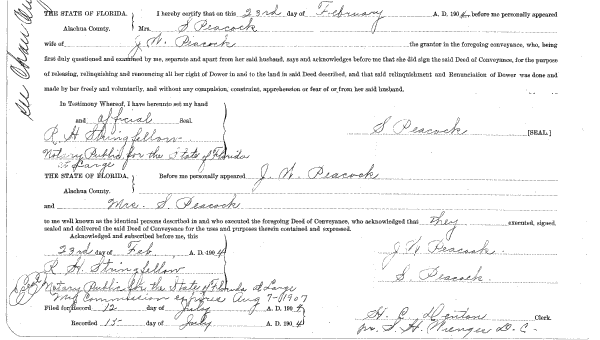 THE STATE OF FLORIDA. } I hereby certify that on this 23rd day of February A. D. 1904, before me personally appeared
Alachua County. Mrs. S Peacock
wife of J. W. Peacock the grantor in the foregoing conveyance, who, being
first duly questioned and examined by me, separate and apart from her said husband, says and acknowledges before me that she did sign the said Deed of Conveyance, for the purpose
of releasing, relinquishing and renouncing all her right of Dower in and to the land in said Deed described, and that said relinquishment and Renunciation of Dower was done and
made by her freely and voluntarily, and without any compulsion, constraint, apprehension or fear of or from her said husband.
In Testimony Whereof, I have hereunto set my hand
and official Seal.
R. H Stringfellow S Peacock [SEAL.]
Notary Public for the State of Florida
at Large
THE STATE OF FLORIDA. } Before me personally appeared J. W. Peacock
Alachua County.
and Mrs. S. Peacock
to me well known as the identical persons described in and who executed the foregoing Deed of Conveyance, who acknowledged that they executed, signed,
sealed and delivered the said Deed of Conveyance for the uses and purposes therein contained and expressed.
Acknowledged and subscribed before me, this
23rd day of Feb A. D. 1904 J. W Peacock
R. H. Stringfellow S. Peacock
Notary Public for the State of Florida at Large
My Commission expires Aug 7-1907
Filed for Record 12 day of July A. D. 1904 H. C. Denton Clerk.
Recorded 15 day of July A. D. 1904 D. C-